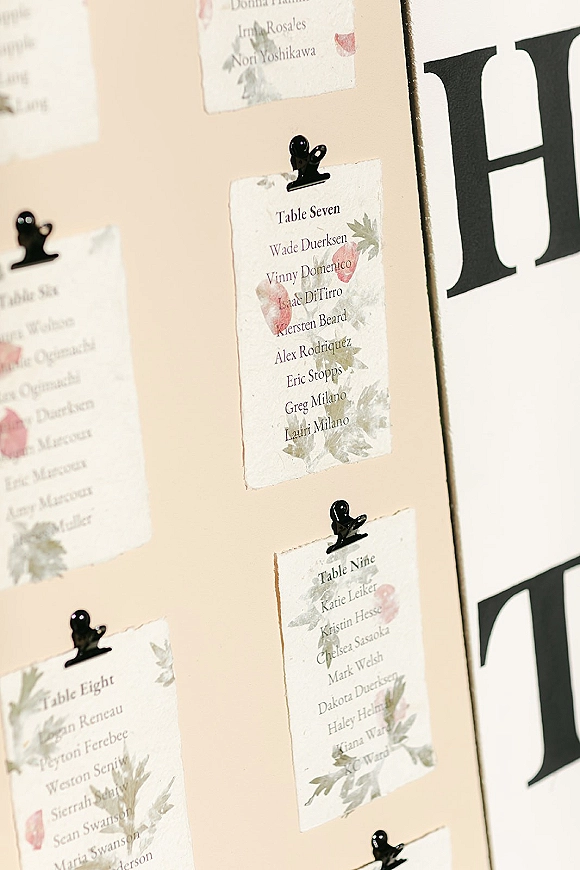 Irma Rosales
Nori Yoshikawa
Table Seven
Wade Duerksen
Vinny Domenico
Isaac DiTirro
Kiersten Beard
Alex Rodriquez
Eric Stopps
Greg Milano
Lauri Milano
Table Six
Ogimachi
Ogimachi
Duerksen
Marcoux
Eric Marcoux
Amy Marcoux
Muller
Table Nine
Katie Leiker
Kristin Hesse
Chelsea Sasaoka
Mark Welsh
Dakota Duerksen
Haley Helm
Kiana Ward
Ward
Table Eight
Logan Reneau
Peyton Ferebee
Weston
Sierrah
Sean Swanson
Maria Swanson
H
T